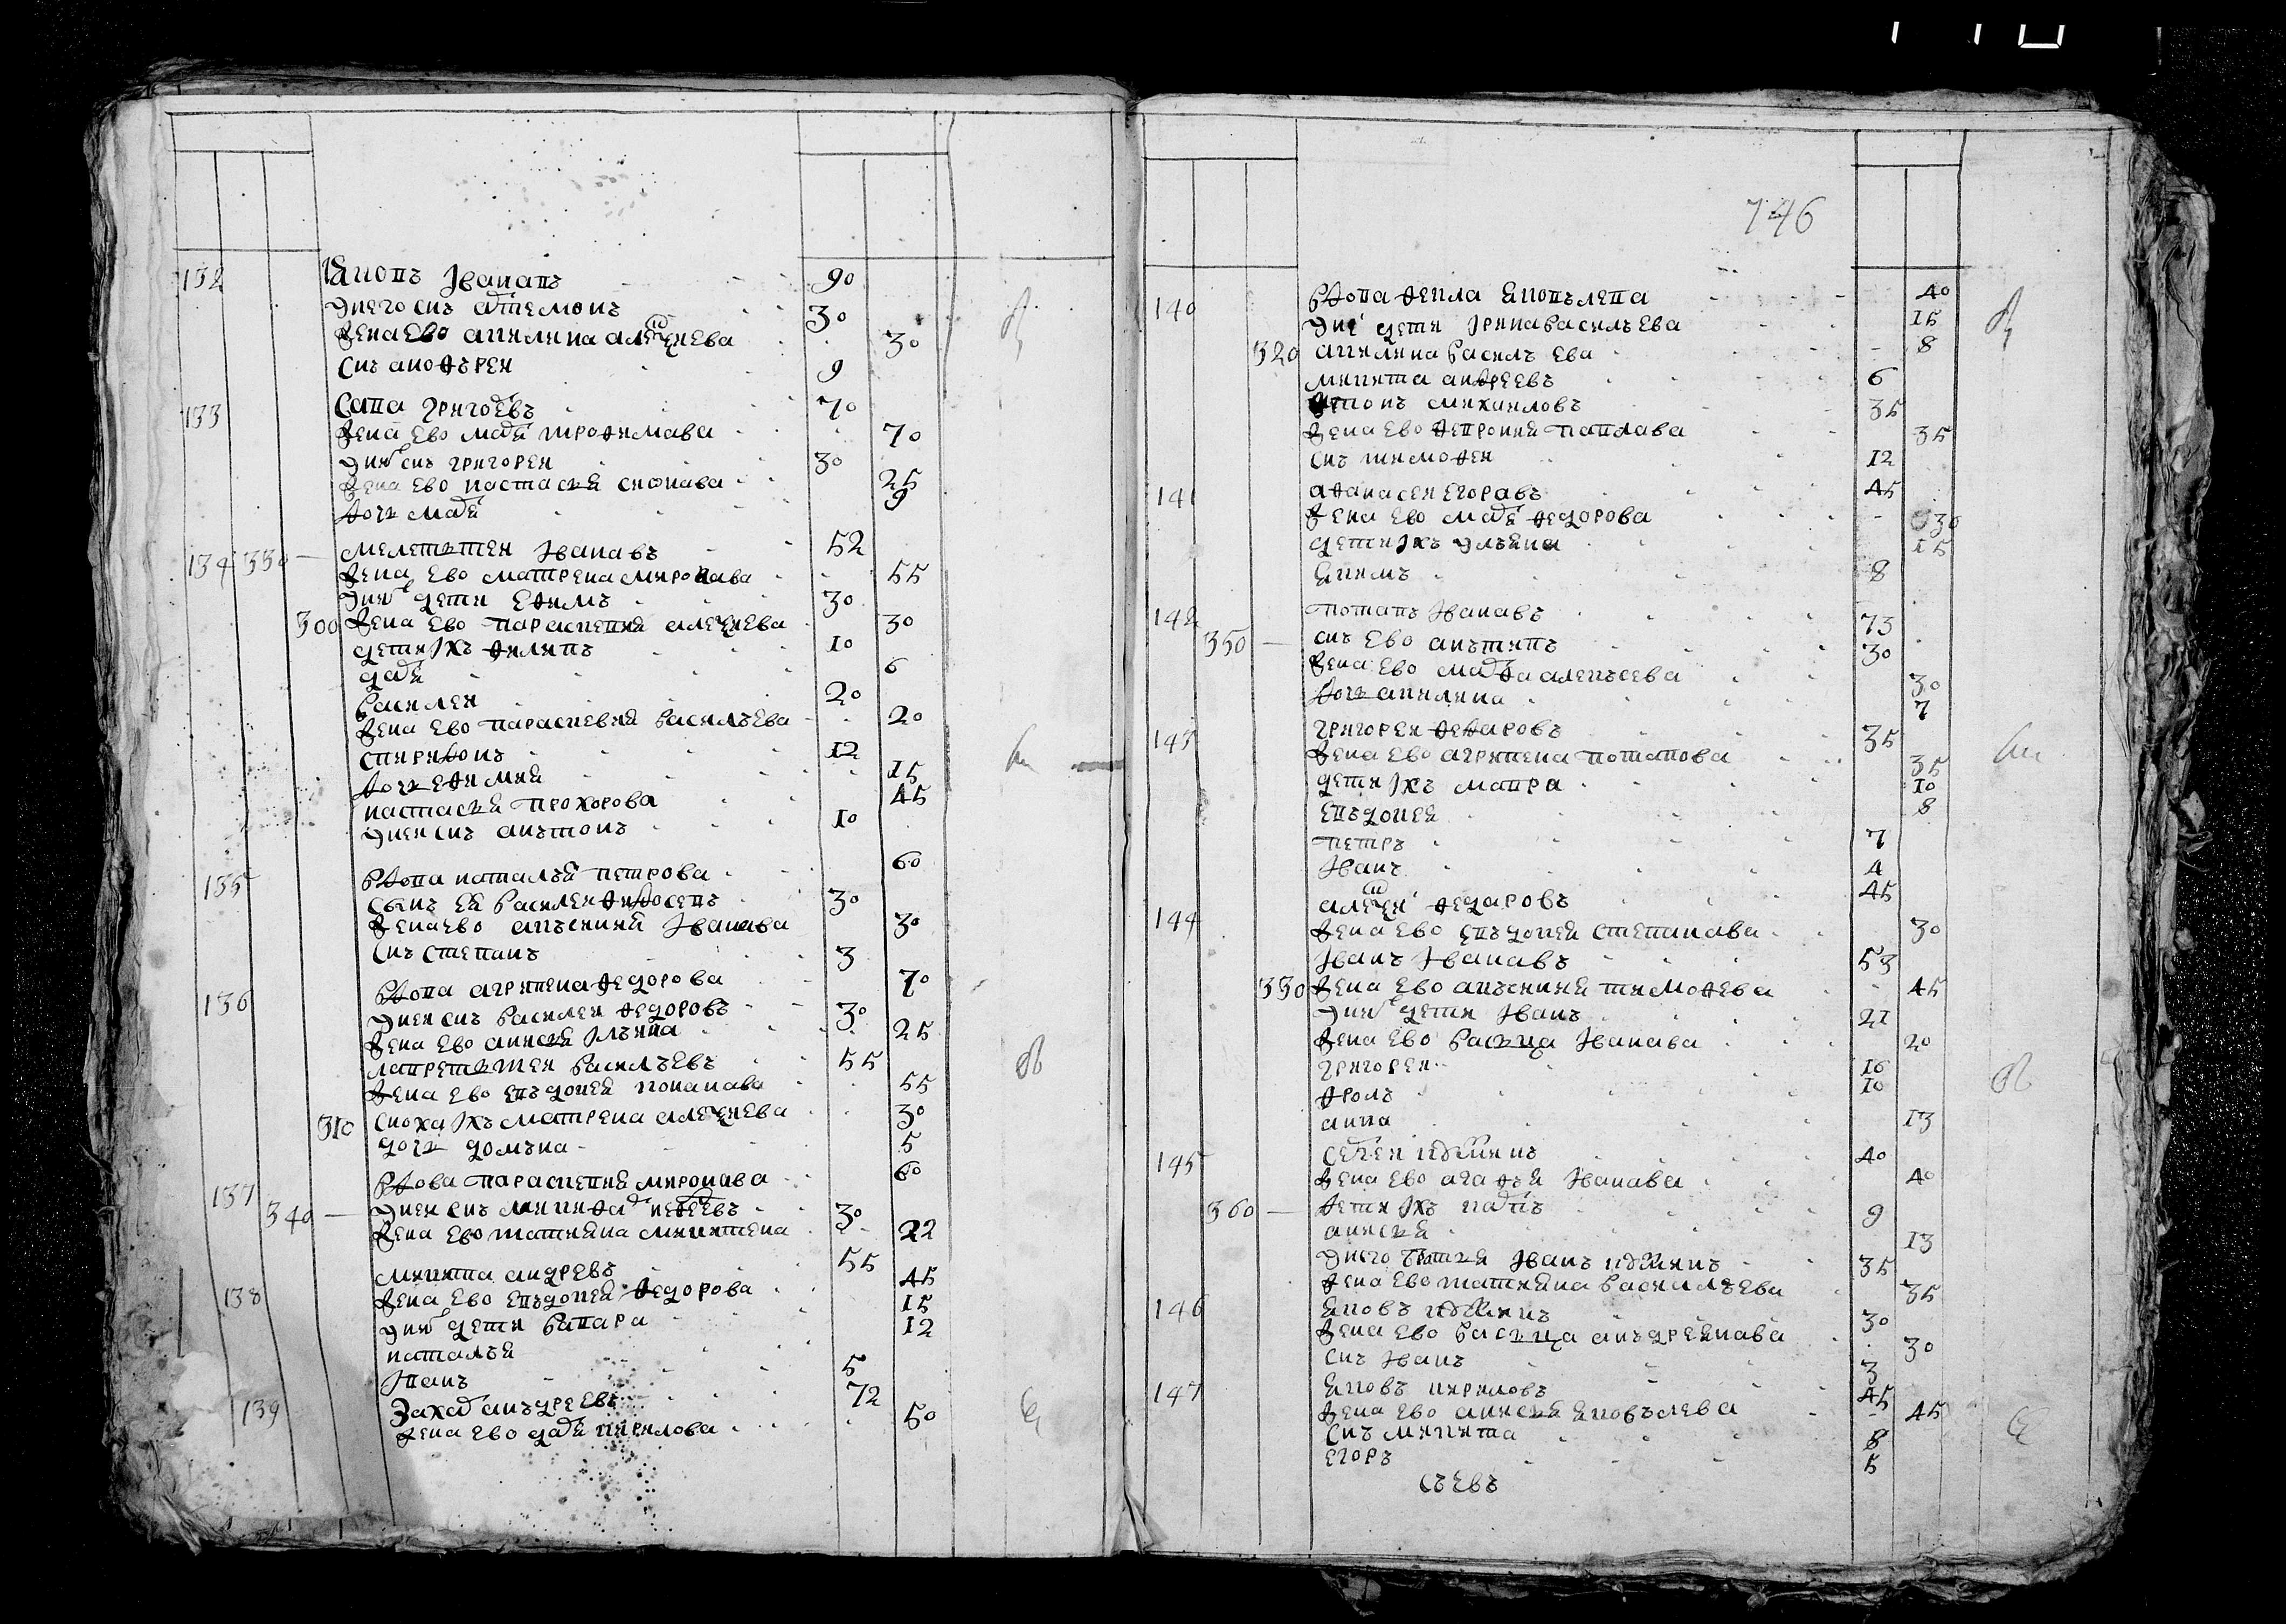 132 Яковъ Иванавъ 90
Унего снъ аѳтемонъ 30
жена ево акилина алеѯиева 30
Снъ анофърей 9
133 Сава григоревъ 70
жена ево маря трофимава 70
Унихъ снъ григорей 30
жена ево настасия 25
дочь маря 9
134 330 мелетътей Иванавъ 52
жена ево матрена миронава 55
Унихъ дети Ефимъ 30
300 жена ево парасковия алеѯиева 30
дети Ихъ филипъ 10
даря 6
василей 20
жена ево парасковия василъева 20
спиридонъ 12
дочь ефимия 15
настасия прохорова 45
Унеи снъ анътонъ 10
135 Вдова наталъя петрова 60
Сынъ ея василей 30
жена ево акъсиния Иванава 30
Снъ степанъ 3
136 Вдова агрипена федорова 70
Унеи снъ василей федоровъ 30
жена ево анисия Илъина 25
лаврентътей василъевъ 55
жена ево евъдокея конанава 55
310 сноха Ихъ матрена алеѯиева 30
дочь домъна 5
137 Вдова парасковия миронава 60
340 Унеи снъ никифар 30
жена ево татияна микитена 22
138 микита андревъ 55
жена ево евъдокея федорова 45
Унихъ дети варвара 15
наталъя 12
Иванъ 5
139 Захар анъдреевъ 72
жена ево даря кирилова 50
746
140 Вдова фекла яковълева 40
Унеи дети Ирина василъева 15
320 акилина василъева 8
микита андреевъ 6
антонъ михаиловъ 35
жена ево феврония павлава 35
снъ тимофей 12
141 афанасей егоравъ 45
жена ево маря федорова 30
дети Ихъ улъяна 15
якимъ 8
142 потапъ Иванавъ 73
350 снъ ево анътипъ 30
жена ево марфа алекъсева 30
дочь акилина 7
143 григорей федаровъ 35
жена ево агрипена потапова 35
дети Ихъ мавра 10
евъдокея 8
петръ 7
Иванъ 4
144 алеѯей федаровъ 45
жена ево евъдокея степанава 30
Иванъ Иванавъ 53
330 жена ево акъсиния тимофева 45
Унихъ дети Иванъ 21
жена ево васъса Иванава 20
григорей 16
фролъ 10
анна 13
145 сергей 40
жена ево агафъя Иванава 40
360 дети Ихъ карпъ 9
анисия 13
Унего братъя Иванъ 35
жена ево татияна василъева 35
146 яковъ 30
жена ево васъса анъдреянава 30
снъ Иванъ 3
147 яковъ кириловъ 45
жена ево анисия яковълева 45
снъ микита 8
егоръ 5
съевъ